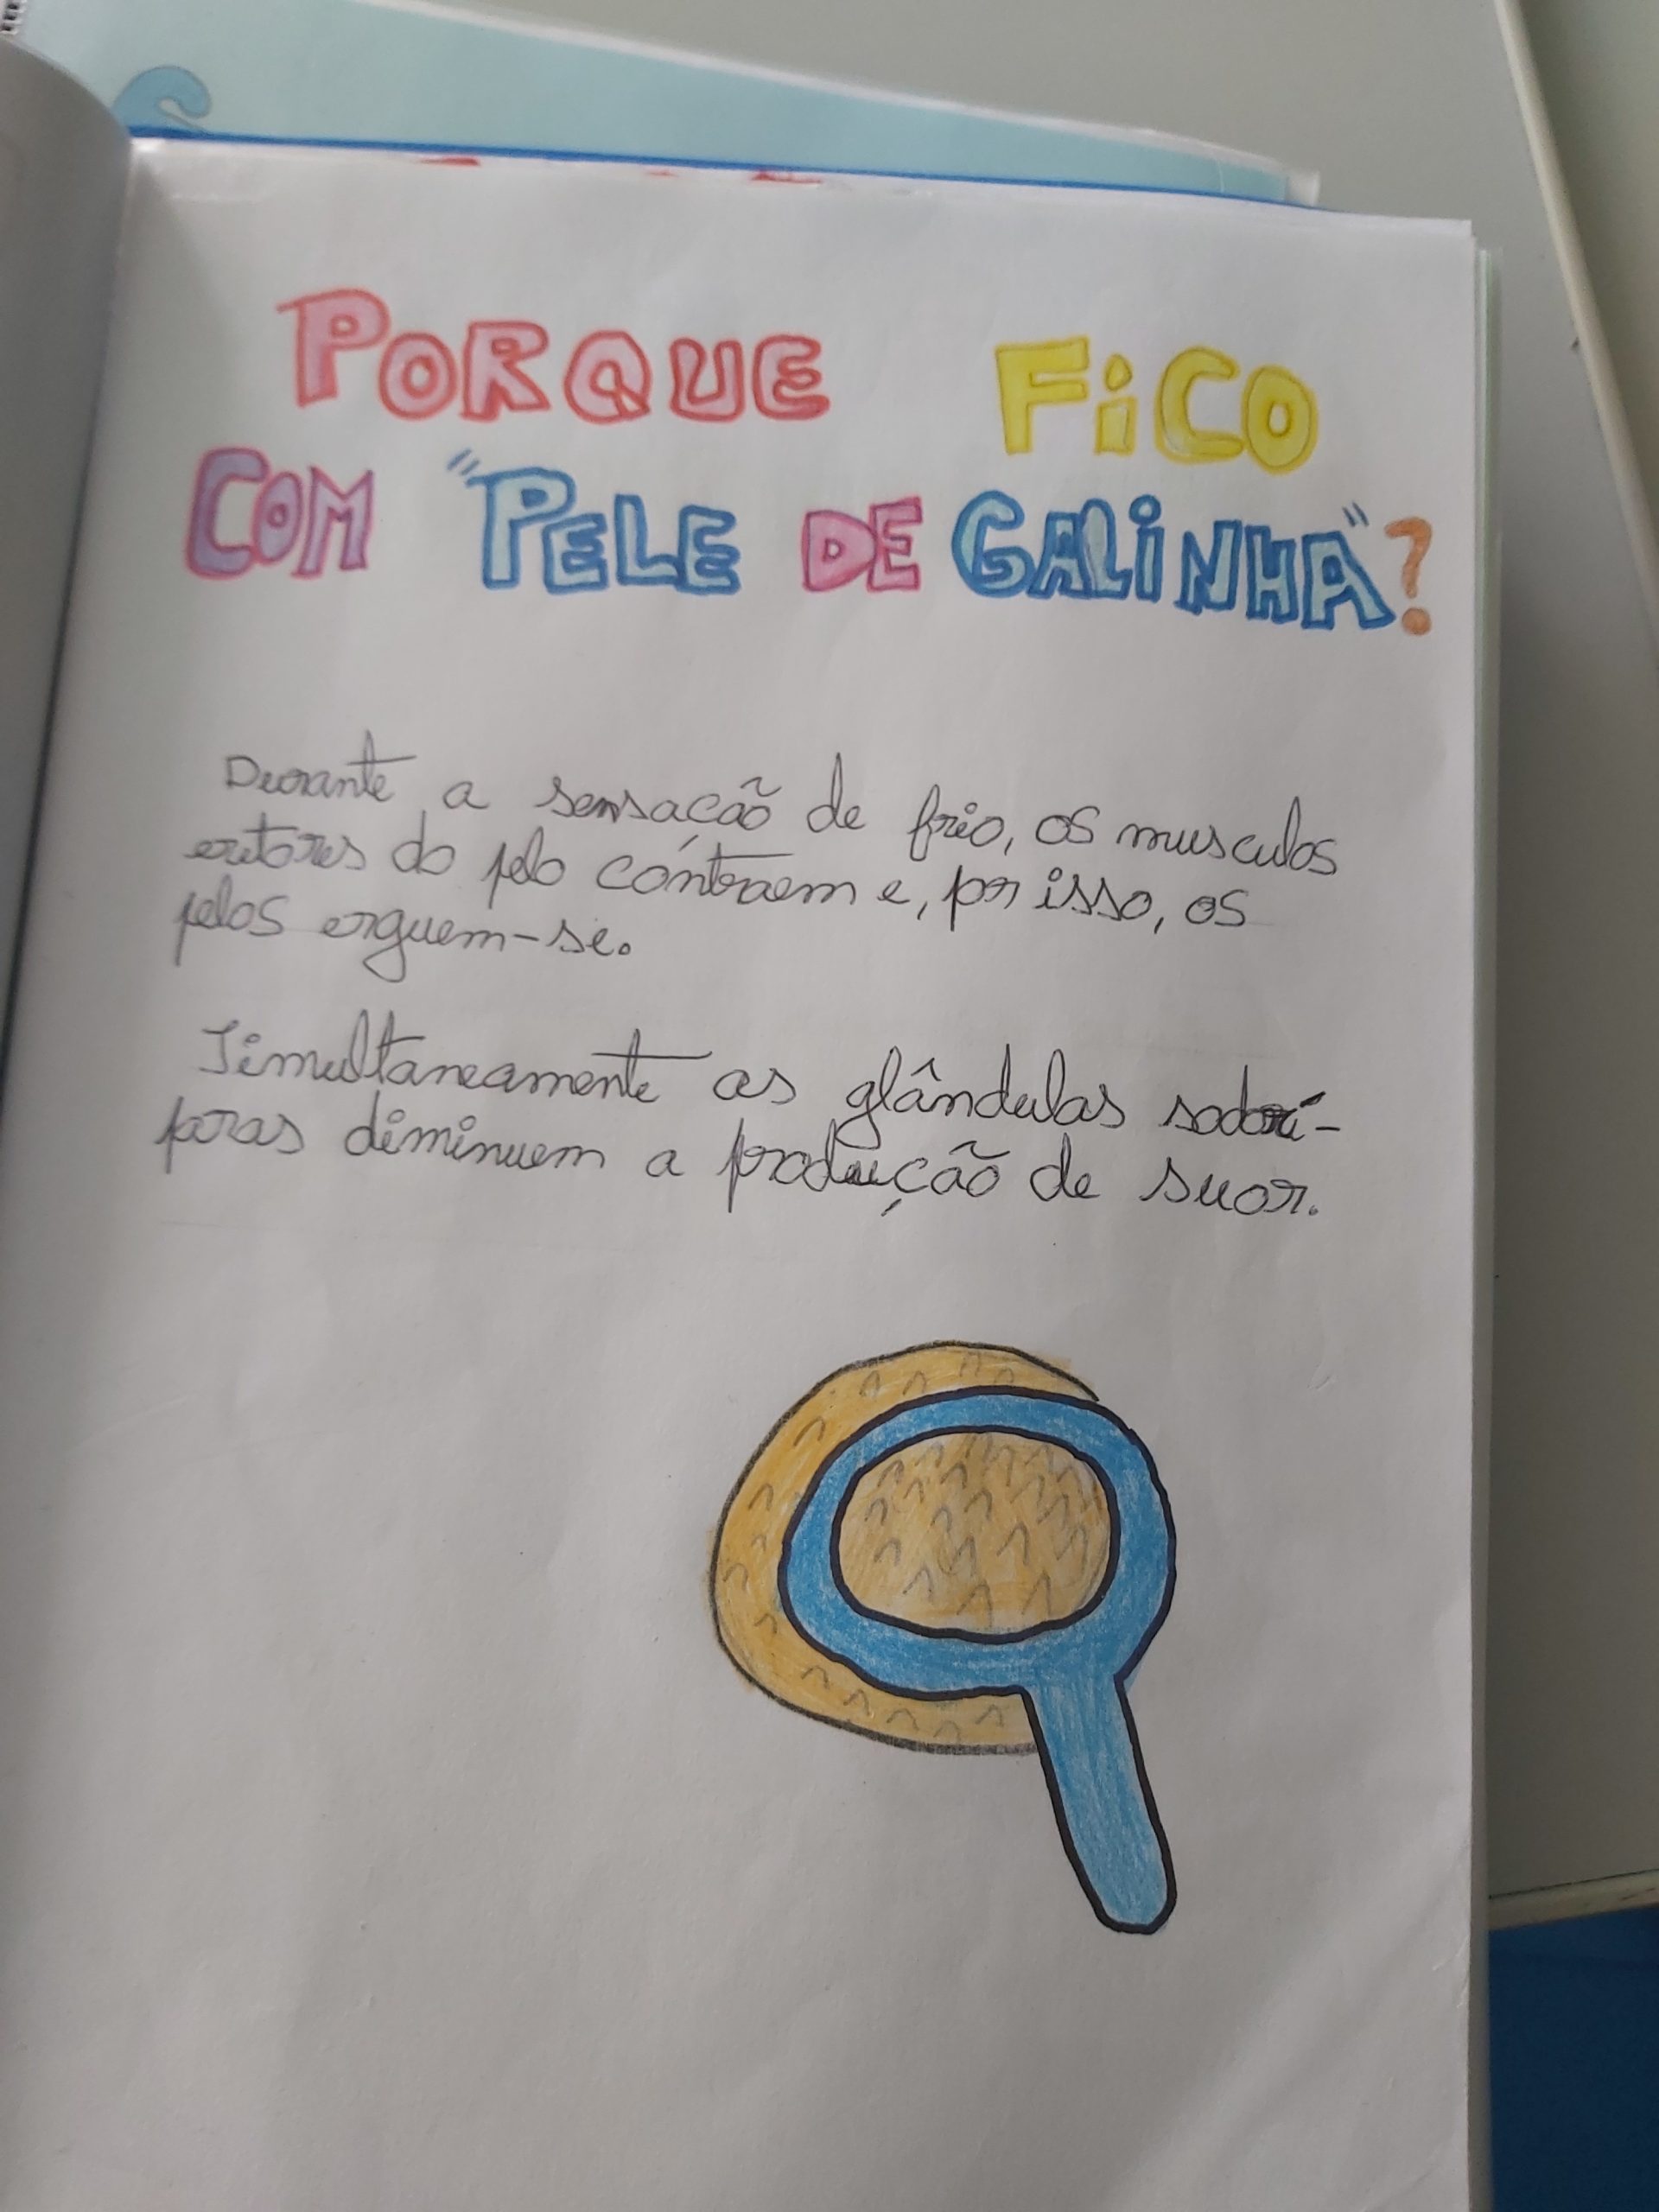 PORQUE FiCO
COM "PELE DE GALiNHA"?
Durante a sensação de frio, os musculos
eretores do pelo contraem e, por isso, os
pelos erguem-se.
Simultaneamente as glândulas sodorí-
paras diminuem a produção de suor.